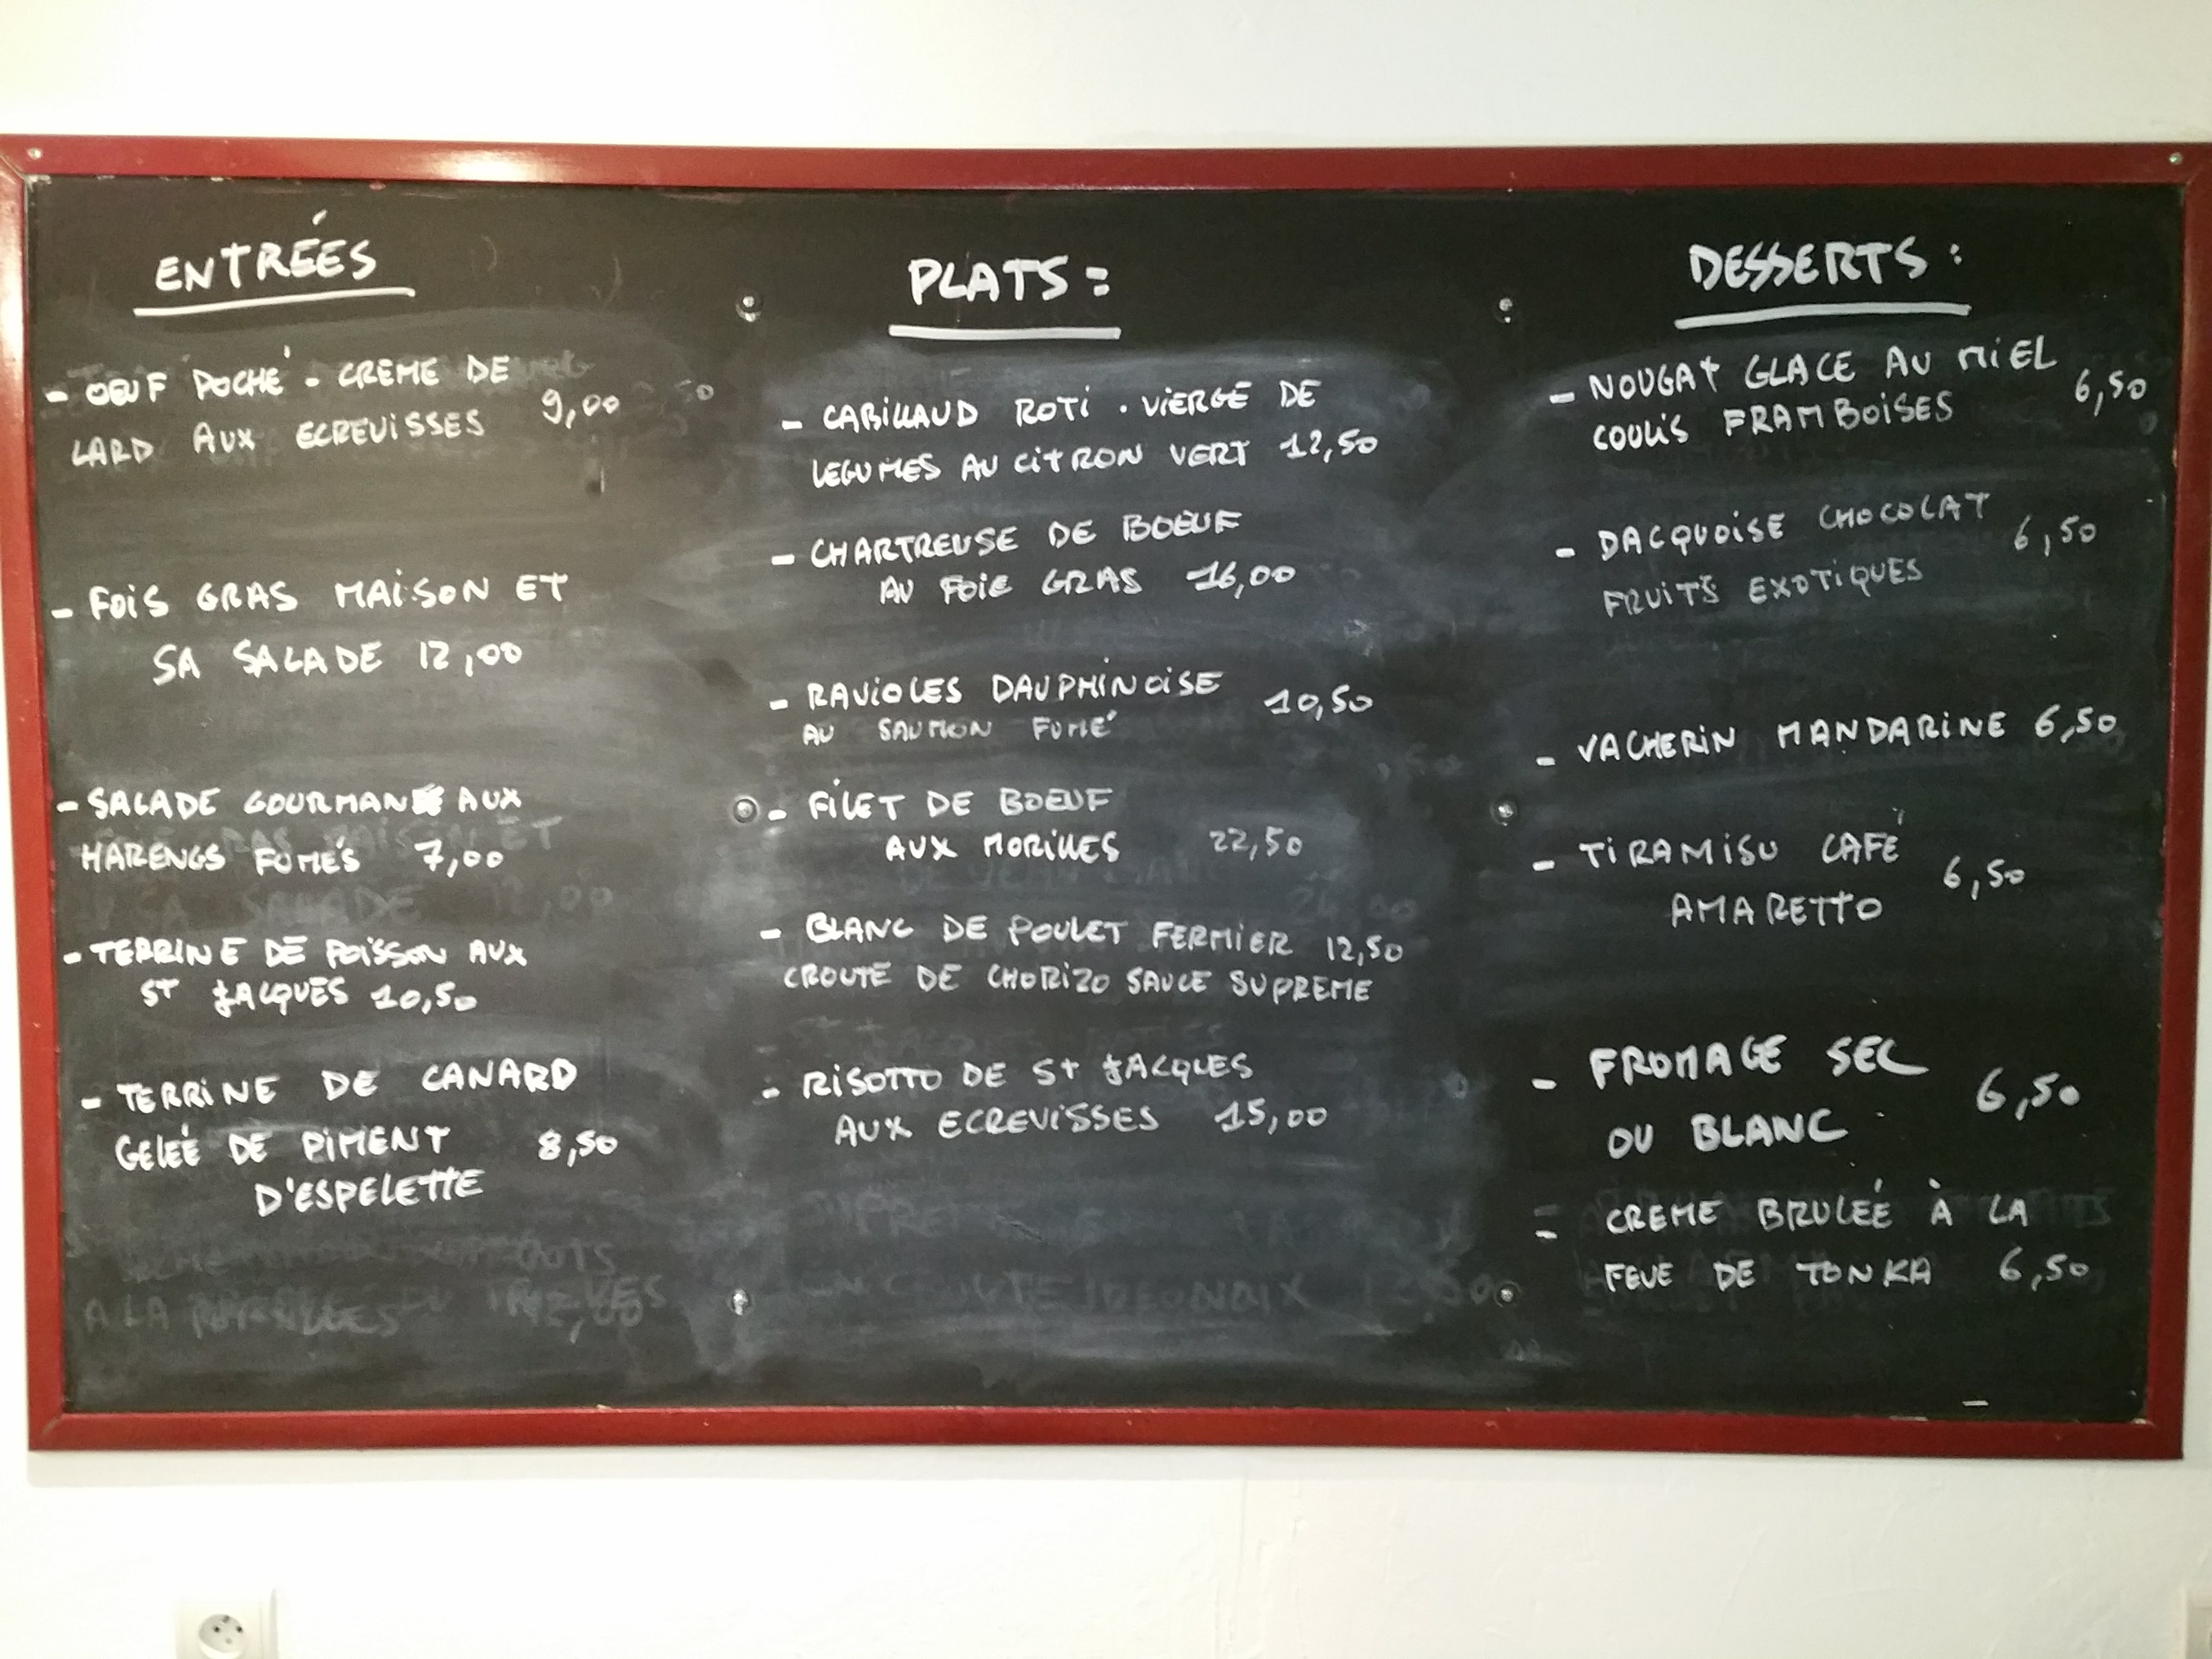 ENTRÉES
- OEUF POCHÉ - CREME DE
LARD AUX ECREVISSES 9,00
- FOIS GRAS MAISON ET
SA SALADE 12,00
- SALADE GOURMANDE AUX
HARENGS FUMÉS 7,00
- TERRINE DE POISSON AUX
ST JACQUES 10,50
- TERRINE DE CANARD
GELEÉ DE PIMENT 8,50
D'ESPELETTE
PLATS :
- CABILLAUD ROTI . VIERGE DE
LEGUMES AU CITRON VERT 12,50
- CHARTREUSE DE BOEUF
AU FOIE GRAS 16,00
- RAVIOLES DAUPHINOISE 10,50
AU SAUMON FUMÉ
- FILET DE BOEUF
AUX MORILLES 22,50
- BLANC DE POULET FERMIER 12,50
CROUTE DE CHORIZO SAUCE SUPREME
- RISOTTO DE ST JACQUES
AUX ECREVISSES 15,00
DESSERTS :
- NOUGAT GLACE AU MIEL 6,50
COULIS FRAMBOISES
- DACQUOISE CHOCOLAT 6,50
FRUITS EXOTIQUES
- VACHERIN MANDARINE 6,50
- TIRAMISU CAFÉ 6,50
AMARETTO
- FROMAGE SEC 6,50
OU BLANC
- CREME BRULEÉ À LA
FEVE DE TONKA 6,50